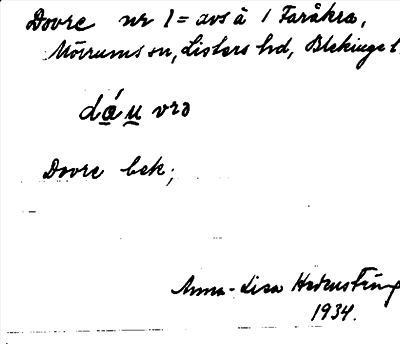 Dovre nr 1 = avs å 1 Faråkra,
Mörrums sn, Listers hd, Blekinge l.
dáu vrə
Dovre bek;
Anna-Lisa
1934.